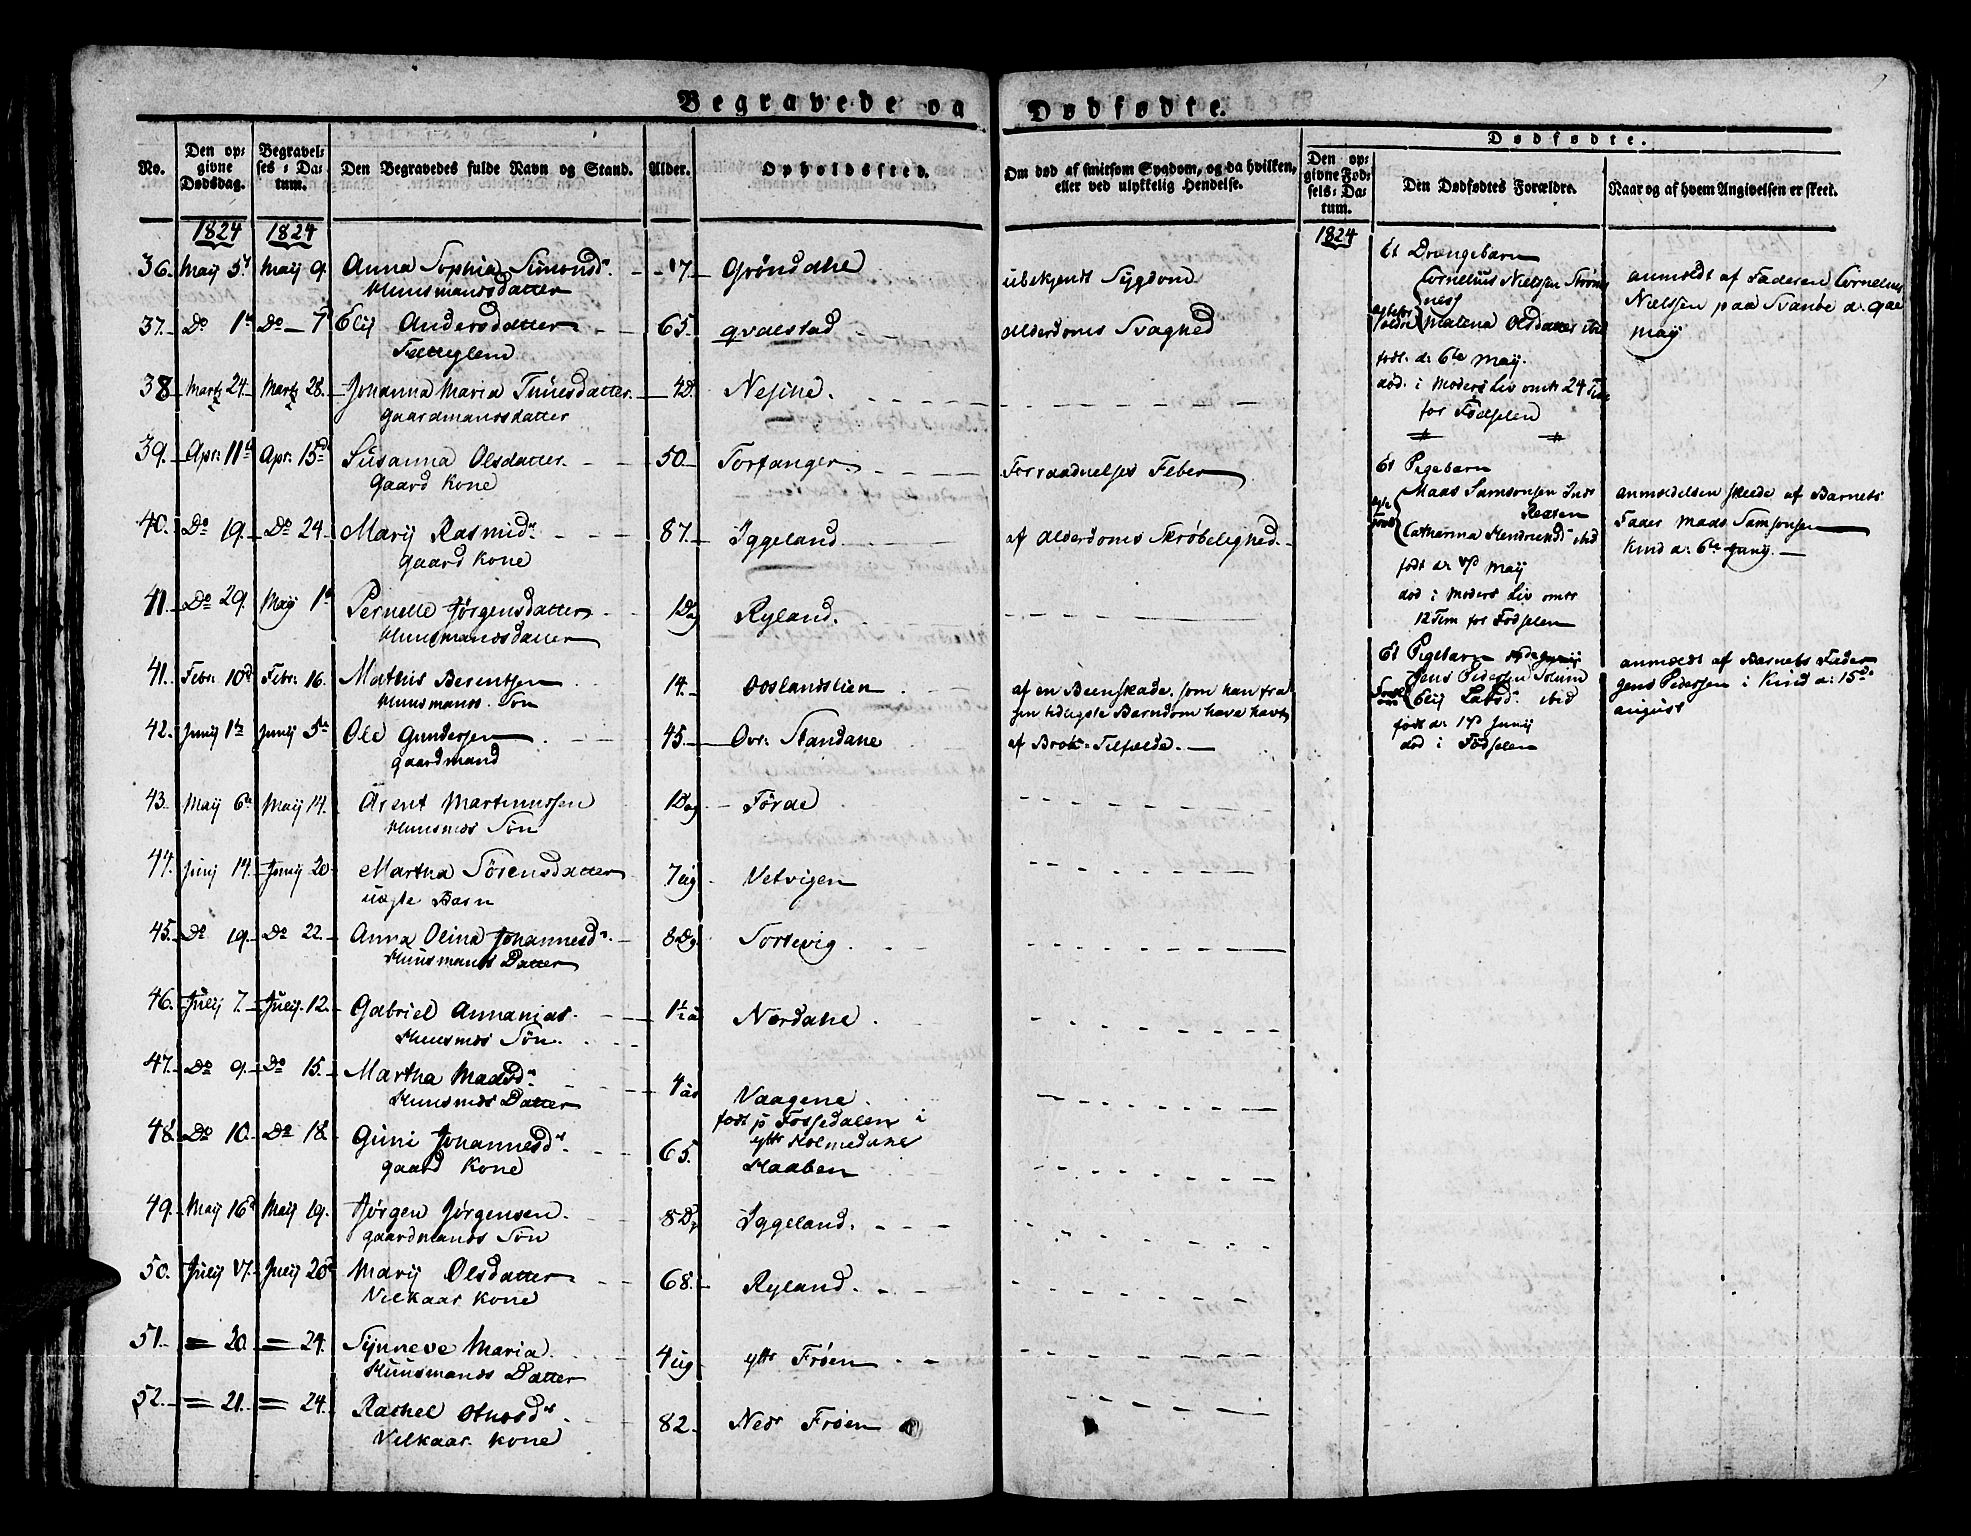 Begravede og Dødfødte.
Dødfødte.
No. Den opgivne Dødsdag. Begravelses-Datum. Den Begravedes fulde Navn og Stand. Alder. Opholdssted. Om død af smitsom Sygdom, og da hvilken, eller ved ulykkelig Hendelse. Den opgivne Fødsels-Datum. Den Dødfødtes Forældre. Naar og af hvem Angivelsen er skeet.
1824 1824 1824
36. Maij 5t Maij 9. Anna Sophia Simonsdr 17. Grøndahle ubekjendt Sygdom
Huusmandsdatter
37. Do 1te Do 7d Elij Andersdatter 65. qvalstad alderdoms Svaghed
38 Martz 24. Martz 28. Johanna Maria Tunesdatter 4D. Nesjine
gaardmansdatter
39. Apr: 11te Apr: 15d Susanna Olsdatter 50 Torfanger Forraadnelses Feber
Gaard Kone
40. Do 19. Do 24. Marij Rasmusdr 87. Iggeland af alderdoms Skrøbelighed
gaard Kone
41. Do 29. Maij 1te Pernelle Jørgensdatter 1Dag Ryland.
Huusmandsdatter
41. Febr: 10d Febr: 16. Mathias Berentsen 14. Ooslandslien af en Beenskade, som han fra
Huusmands Søn sin tidligste Barndom have havt
42. Junij 1te Junij 5te Ole Gundersen 45. Ovr: Standane af Brok-Tilfælde.
gaardmand
43. Maij 6te Maij 14. Arent Martinussen 1Dag Førde
Huusmds Søn
44. Junij 14. Junij 20 Martha Sørensdatter 7 ug Vetvigen
uægte Barn
45. Do 19. Do 22. Anna Olina Johannesdr 8Dg Tortevig
Huusmands Datter
46. Julij 7. Julij 12. Gabriel Annanias 1½ a Nordahle
Huusmds Søn.
47. Do 9. Do 15. Martha Madsdr 4 aar Vaagene
Huusmds Datter
48. Do 10. Do 18. Guni Johannesdr 65. født p Fossedalen i
gaard Kone ytr Holmedahl
Haaben
49. Maij 16d Maij 19. Jørgen Jørgensen 8Dg Iggeland.
gaardmands Søn
50. Julij 17. Julij 20d Marij Olsdatter 68. Ryland
Vilkaar Kone
51. = 20. = 24. Synneve Maria 4 ug ytr Frøen
Huusmands Datter
52. = 21. = 24. Rachel 82. Nedr Frøen
Vilkaar Kone
Et Drengebarn
Cornelius Nielsen
Malena Olsdatter ibid
født d: 6te Maij.
død i Moders Liv omtr 24 Tim
for Fødselen
anmeldt af Faderen Cornelius
Nielsen paa Svanøe d: 9de
Maij
Et Pigebarn
Maas Samsonsen
Catharina Hendricksdr ibid
født d: 17d Maij
død i Moders Liv omtr
12 Tim for Fødselen
anmeldelsen skeede af Barnets
Fader Mads Samsonsen
Kind d: 6te Junij.
Et Pigebarn
Jens Pedersen Solund
Elij Larsdr ibid
født d: 17d Junij
død i Fødselen
anmeldt af Barnets Fader
Jens Pedersen i Kind d: 15de
august